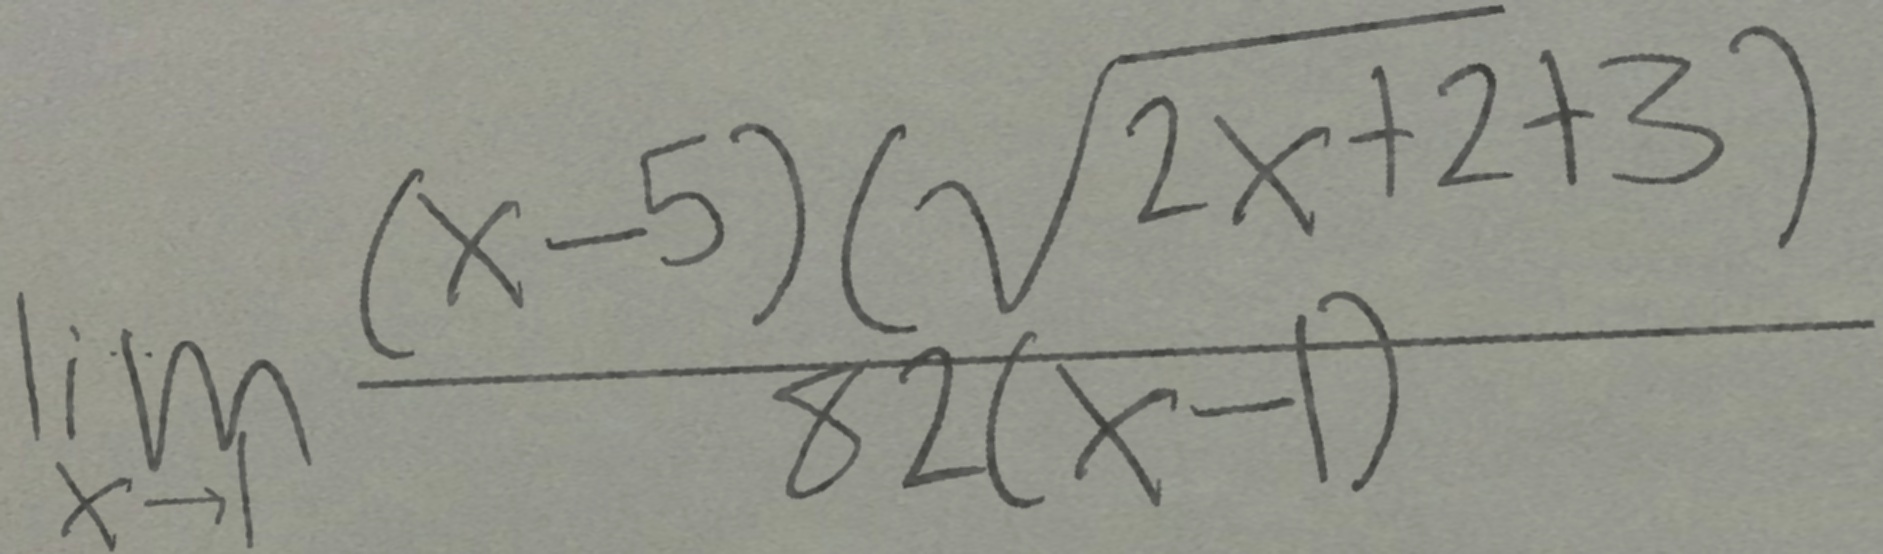 lim x→1 (x-5)(√(2x+2)+3) / 82(x-1)